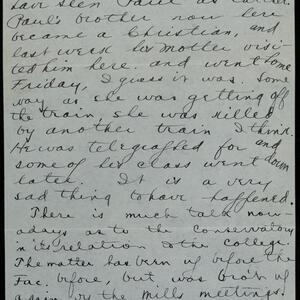 have seen Paul as earlier.
Paul's brother now here
became a Christian, and
last week his mother visi-
ted him here. and went home
Friday, I guess it was. Some
way as she was getting off
the train, she was killed
by another train I think.
He was telegraphed for and
some of his class went down
later. It is a very
sad thing to have happened.
There is much talk now-
adays as to the conservatory
in its relation to the college.
The matter has been up before the
Fac. before, but was bro't up
again by the mills meetings.